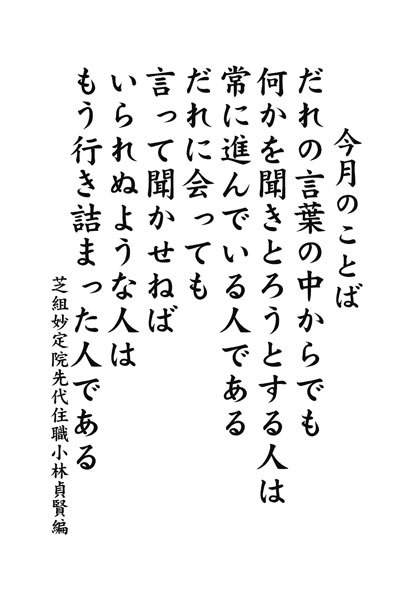 今月のことば
だれの言葉の中からでも
何かを聞きとろうとする人は
常に進んでいる人である
だれに会っても
言って聞かせねば
いられぬような人は
もう行き詰まった人である
芝組妙定院先代住職小林貞賢編